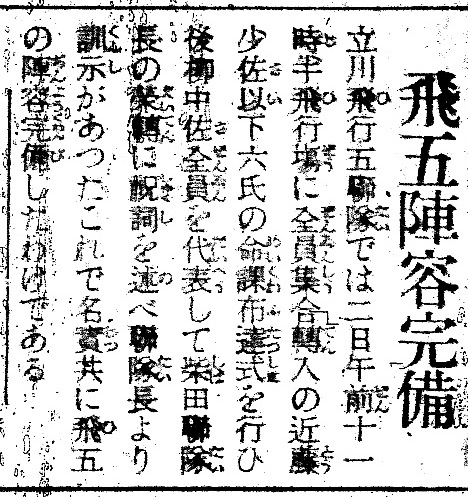 飛五陣容完備
立川飛行五聯隊では二日午前十一
時半飛行場に全員集合轉入の近藤
少佐以下六氏の命課布達式を行ひ
後柳中佐全員を代表して柴田聯隊
長の榮轉に祝詞を述べ聯隊長より
訓示があつたこれで名實共に飛五
の陣容完備したわけである